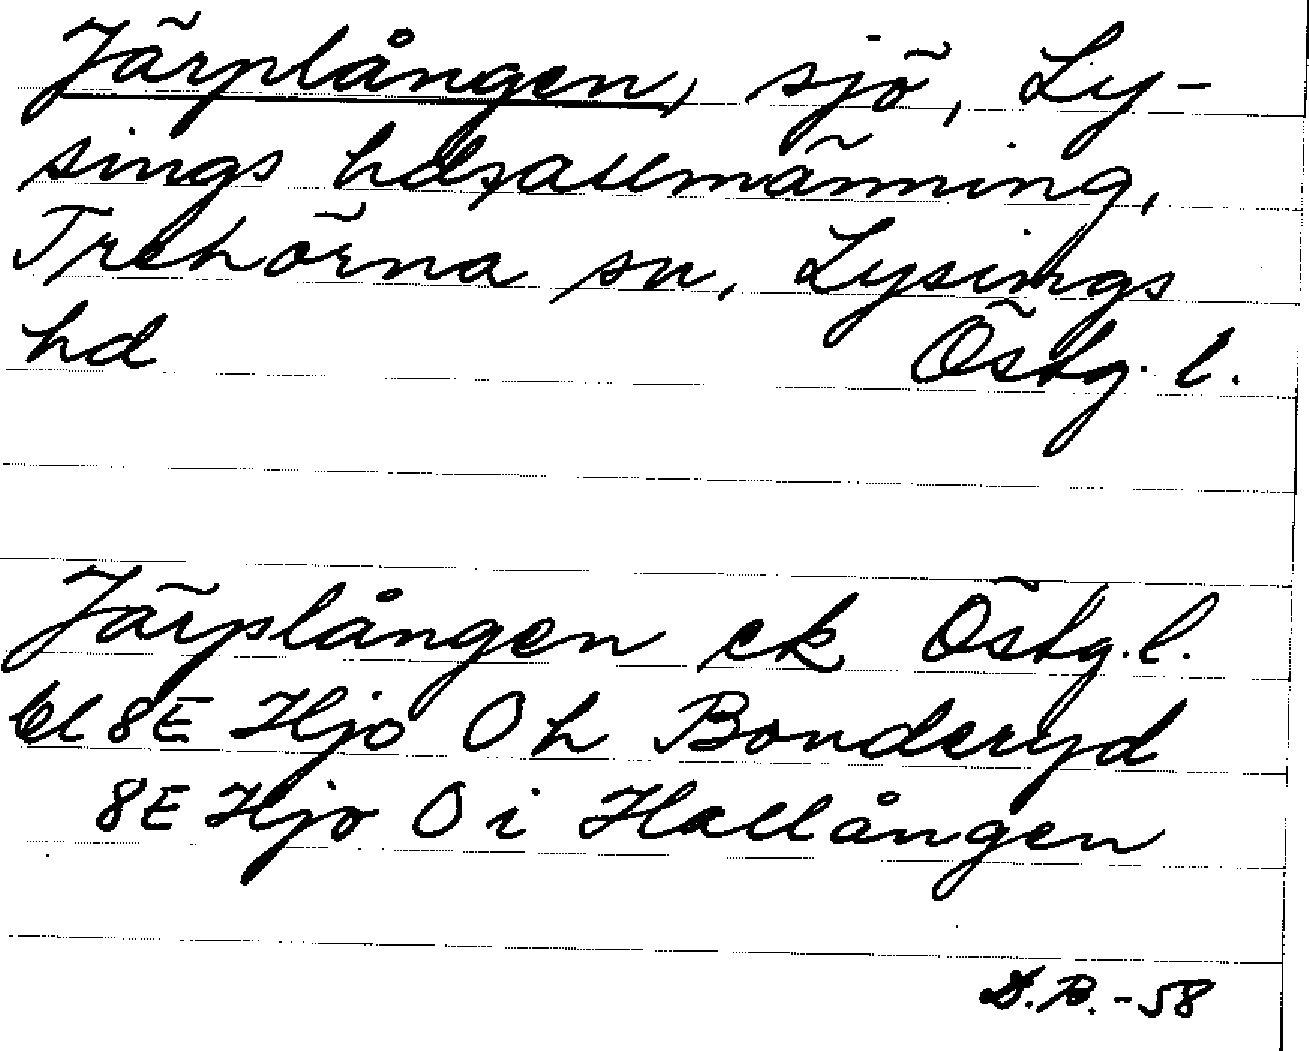 Järplången, sjö, Ly-
sings hdsallmänning,
Trehörna sn, Lysings
hd Östg. l.
Järplången ek Östg. l.
bl 8E Hjo 0 h Bonderyd
8E Hjo 0 i Hallången
D.B. -58